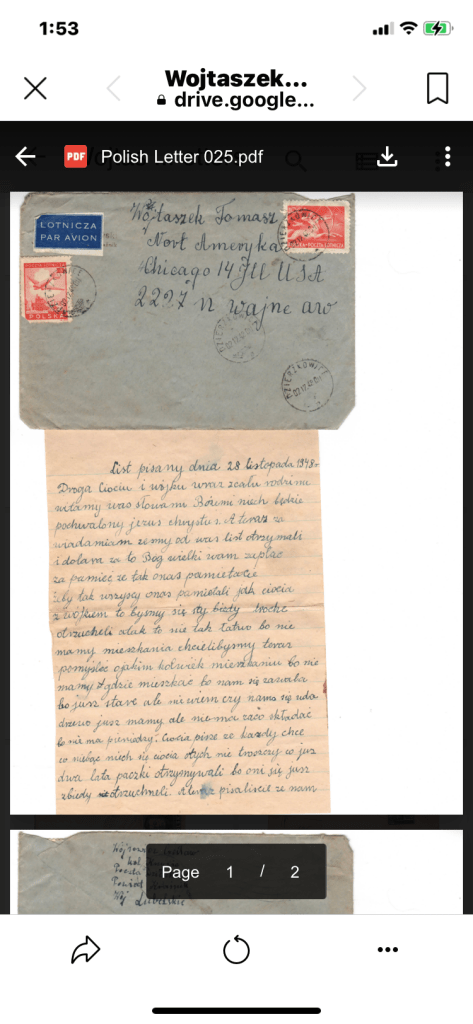 1:53
Wojtaszek...
drive.google...
PDF
Polish Letter 025.pdf
LOTNICZA
PAR AVION
Wojtaszek Tomasz
Nort Ameryka
Chicago 14 Jll USA
2227 n wajne aw
POLSKA
DZIERZKOWICE
List pisany dnia 28 listopada 1948 r
Droga Ciociu i wujku wraz zcału rodzinu
witamy was słowami Bożemi niech będzie
pochwalony jezus chrystus. A teraz za
wiadamiam żeśmy od was list otrzymali
i dolara za to Bog wielki wam zapłac
za pamięc ze tak onas pamiętacie
żeby tak wszyscy onas pamiętali jak ciocia
z wójkiem to byśmy się tyj biedy troche
otrzucheli aduk to nie tak łatwo bo nie
mamy mieszkania chcielibyśmy teraz
pomyśleć ojakim kolwiek mieszkaniu bo nie
mamy gdzie mieszkać bo nam się zawala
bo jusz stare ale niewiem czy nam się uda
drzewo jusz mamy ale niema zaco składać
bo nima pieniędzy. Ciocia pisze ze kazdy chce
co niebąc niech się ciocia otych nie troszczy co jusz
dwa lata paczki otrzymywali bo oni się jusz
zbiedy otrzuchneli. A teraz pisaliscie ze nam
Page 1 / 2
Lubelskie